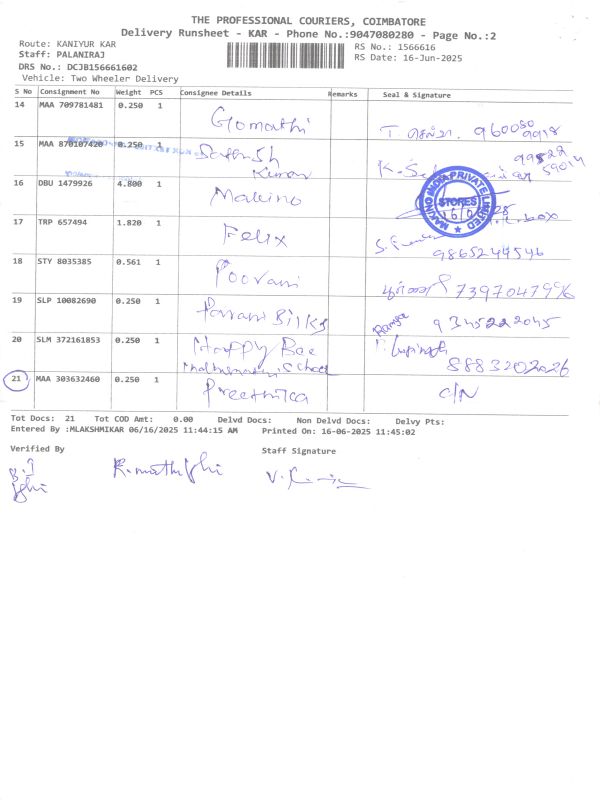 THE PROFESSIONAL COURIERS, COIMBATORE
Delivery Runsheet - KAR - Phone No.:9047080280 - Page No.:2
Route: KANIYUR KAR
Staff: PALANIRAJ
DRS No.: DCJB156661602
Vehicle: Two Wheeler Delivery
RS No.: 1566616
RS Date: 16-Jun-2025
S No Consignment No Weight PCS Consignee Details Remarks Seal & Signature
14 MAA 709781481 0.250 1 Gomathi T. 960050 9918
15 MAA 870107420 0.250 1 Sathish Kumar
16 DBU 1479926 4.800 1 Makino
MAKINO INDIA PRIVATE LIMITED
STORES
17 TRP 657494 1.820 1 Felix 9865244546
18 STY 8035385 0.561 1 Poovani 7397047996
19 SLP 10082690 0.250 1 Pavani 9345222045
20 SLM 372161853 0.250 1 Happy Bee School 8883202026
21 MAA 303632460 0.250 1 Preethika C/N
Tot Docs: 21 Tot COD Amt: 0.00 Delvd Docs: Non Delvd Docs: Delvy Pts:
Entered By :MLAKSHMIKAR 06/16/2025 11:44:15 AM Printed On: 16-06-2025 11:45:02
Verified By Staff Signature